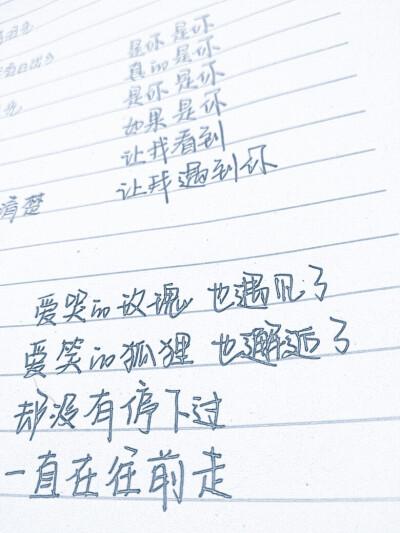 是你 是你
真的是你
是你 是你
如果是你
让我看到
让我遇到你
清楚
爱哭的玫瑰 也遇见了
爱笑的狐狸 也邂逅了
却没有停下过
一直在往前走